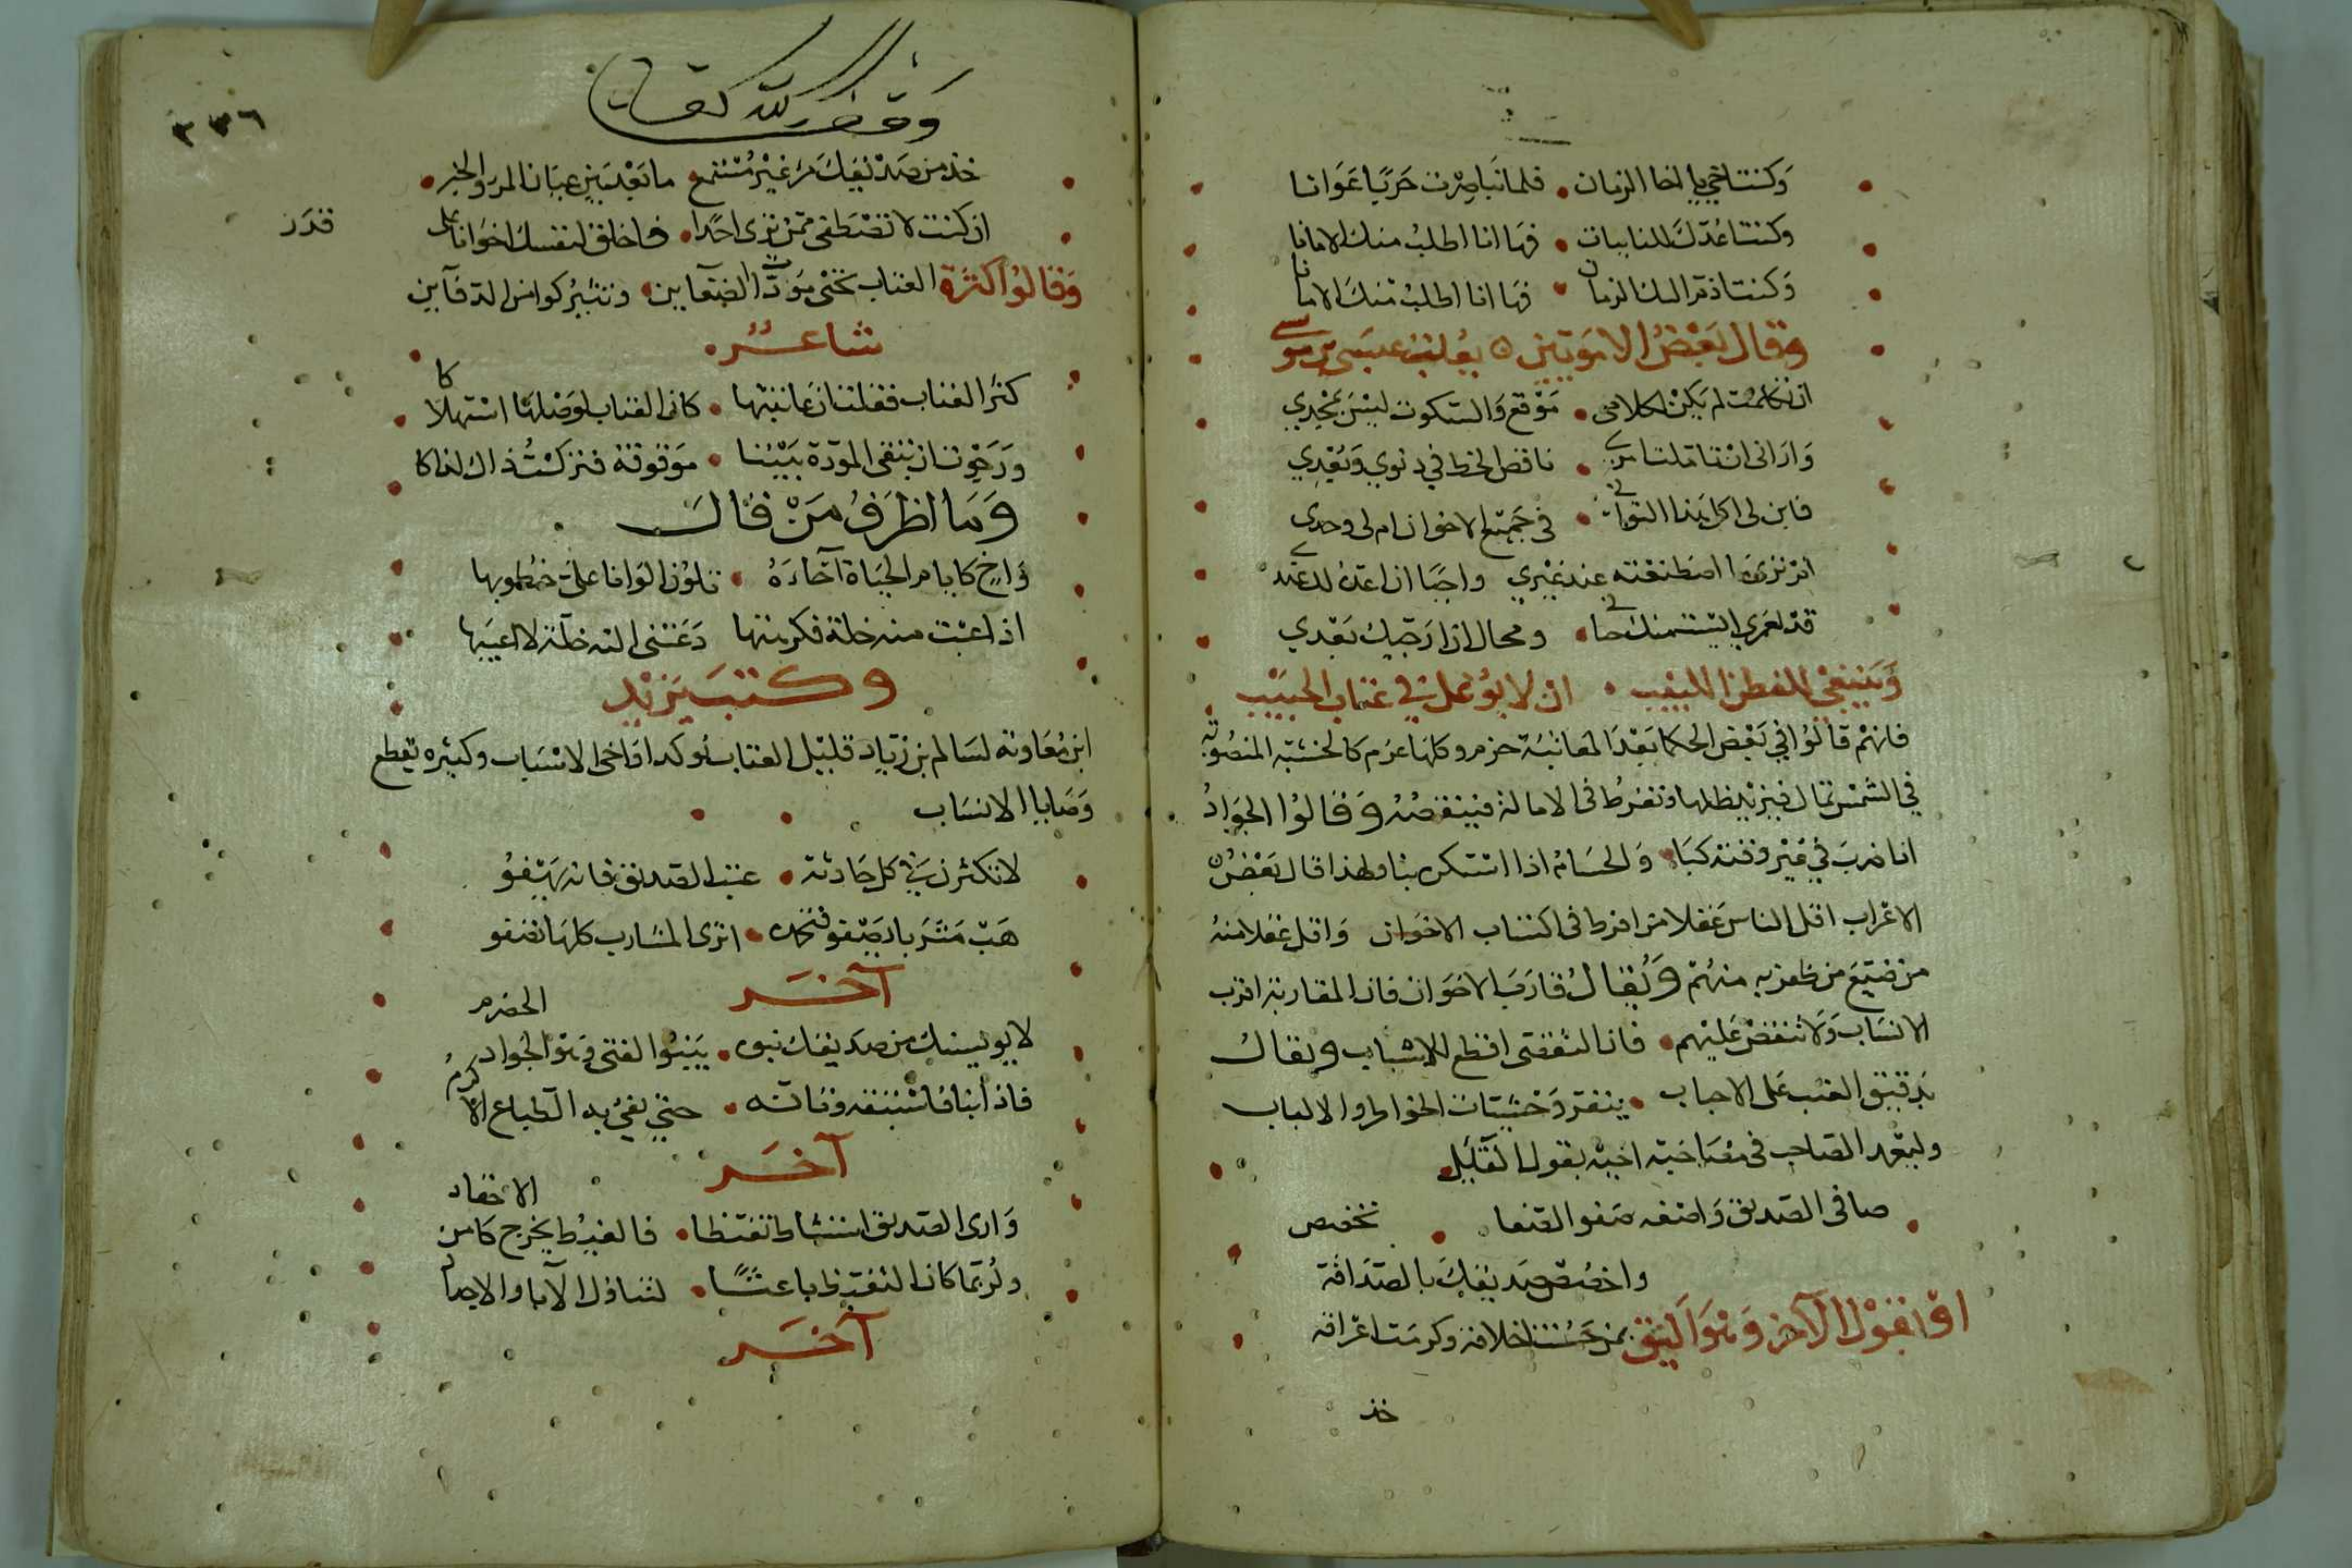 وكنت اخي باخا الزمان فلما نبا صرت حربا عوانا
وكنت اعدك للنايبات فها انا اطلب منك الامانا
وكنت اذم اليك الزمان فها انا اطلب منك الامانا
وقال بعض الامويين يعاتب عيسى بن موسى
ان تكلمت لم يكن لكلامي موقع والسكوت ليس بمجدي
واراني ناقص الحظ في دنوي وبعدي
فابن لي اكل هذا التواني في جميع الاخوان ام لي وحدي
عند غيري واجبا ان اعده لك عندي
قد لعمري ايست منك حيا ومحال ان ارتجيك بعدي
وينبغي للفطن اللبيب ان لا يوغل في عتاب الحبيب
فانهم قالوا في بعض الحكم بعد المعاتبة حزم وكلها عزم كالخشبة المنصوبة
في الشمس تمال فيزيد ظلها وتفرط في الامالة فينقص وقالوا الجواد
اذا ضرب في غير وقته كبا والحسام اذا استكره نبا ولهذا قال بعض
الاعراب اقل الناس عقلا من افرط في اكتساب الاخوان واقل عقلا منه
من ضيع من ظفر به منهم ويقال قارب الاخوان فان المقاربة اقرب
الانساب ولا تنقض عليهم فان التقضي اقطع للاسباب ويقال
تدقيق العتب على الاحباب ينفر وحشيات الخواطر والالباب
وليتعهد الصاحب في مصاحبة اخيه بقول القايل
صافي الصديق واصفه صفو الصفا تخصص
واخصص صديقك بالصداقة
او بقول الآخر وهو اليق بمن حسنت اخلاقه وكرمت اعراقه
خذ
وقف لله تعالى
٣٣٦
خذ من صديقك مر غير متنع ما بعد بين عيان المر والخبر
ان كنت لا تصطفي ممن ترى احدا فاخلق لنفسك اخوانا على
قدر
وقالوا كثرة العتاب تحيي موتى الضغاين وتثير كوامن الدفاين
شاعر
كثر العتاب فقلت ان عاتبتها كان العتاب لوصلها استهلاكا
ورجوت ان تبقى المودة بيننا موقوفة فتركت ذاك لذاكا
وما اظرف من قال
واخ كايام الحياة آخاؤه تلون الوانا على خطوبها
اذا عبت منه خلة فكرهتها دعتني اليه خلة لا اعيبها
وكتب يزيد
ابن معاوية لسالم بن زياد قليل العتاب يوكد اواخي الاسباب وكثيره يقطع
وصايا الانساب
لا تكثرن في كل حادثة عتب الصديق فانه يهفو
هب مشربا يصفو فتحمده اترى المشارب كلها تصفو
آخر
الخضرم
لا يويسنك من صديقك نبوة ينبوا الفتى وهو الجواد
فاذا نبا فاستبقه وتأنه حتى يفي به الطباع الاكرم
آخر
الاحقاد
وارى الصديق اذا استشاط تغيظا فالغيظ يخرج كامن
ولربما كان التغيظ باعثا لتناول الآباء والاجداد
آخر